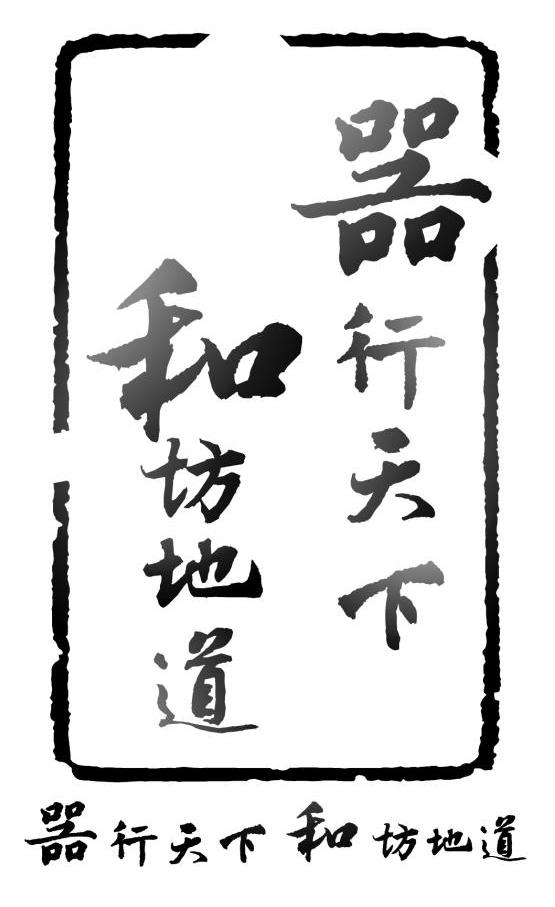 器行天下
和坊地道
器行天下和坊地道